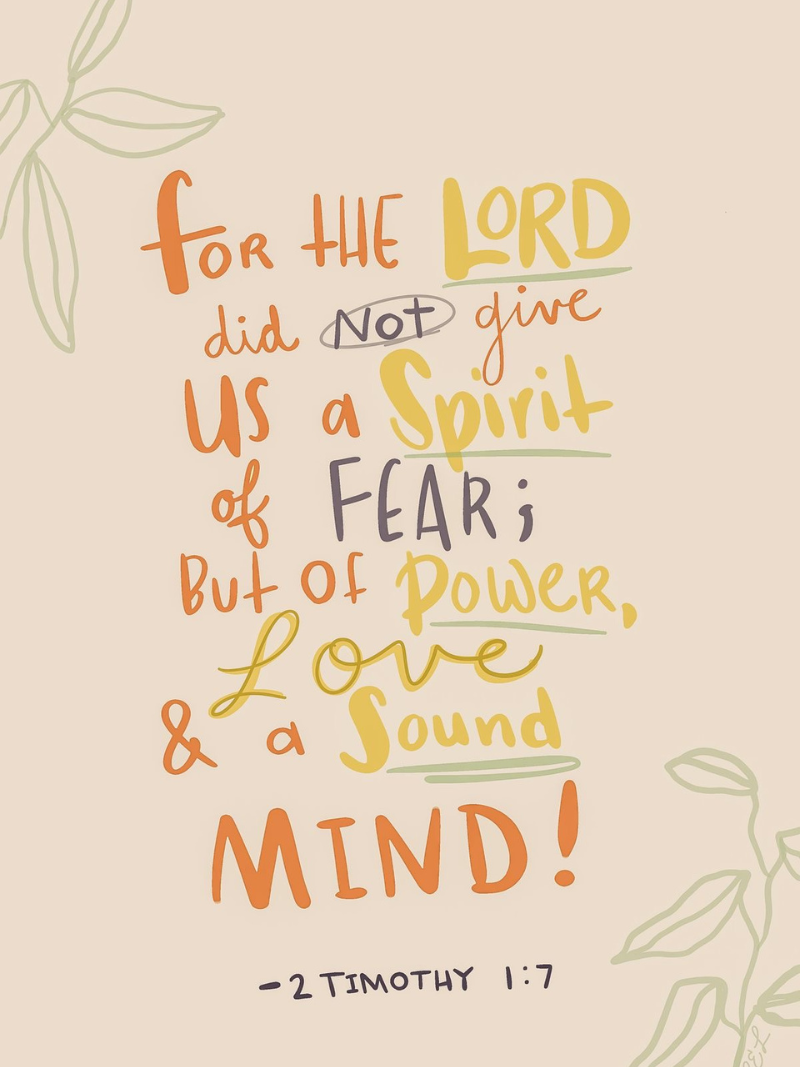 for THE LORD
did Not give
US a Spirit
of FEAR;
But Of Power,
Love
& a Sound
MIND!
-2 TIMOTHY 1:7